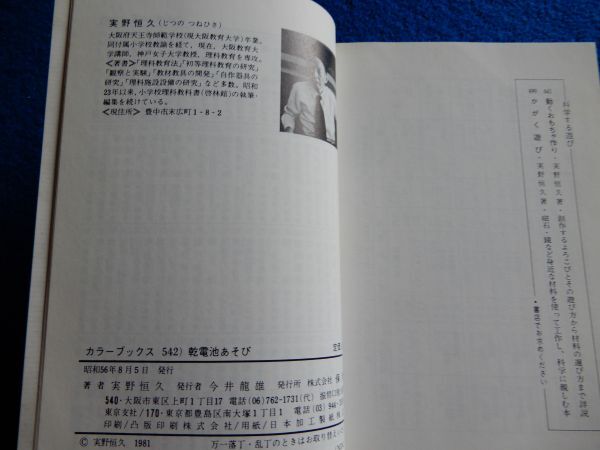 実野恒久(じつの つねひさ)
大阪府天王寺師範学校(現大阪教育大学)卒業。
同付属小学校教諭を経て、現在、大阪教育大
学講師、神戸女子大学教授。理科教育を専攻。
<著書>「理科教育法」「初等理科教育の研究」
「観察と実験」「教材教具の開発」「自作器具の
研究」「理科施設設備の研究」など多数。昭和
23年以来、小学校理科教科書(啓林館)の執筆・
編集を続けている。
<現住所> 豊中市末広町1-8-2
カラーブックス 542) 乾電池あそび
昭和56年8月5日 発行
著者 実野恒久 発行者 今井龍雄 発行所 株式会社 保
540・大阪市東区上町1丁目17 電話(06)762-1731(代)
東京支社/170・東京都豊島区南大塚1丁目 電話(03)
印刷/凸版印刷株式会社/用紙/日本加工製紙
© 実野恒久 1981 万一落丁・乱丁のときはお取り替え
科学する遊び
動くおもちゃ作り・実野恒久著・創作するよろこびとその遊び方から材料の選び方まで詳説
かがく遊び・実野恒久著・磁石・鏡など身近な材料を使って工作し、科学に親しむ本
・書店でお求めください